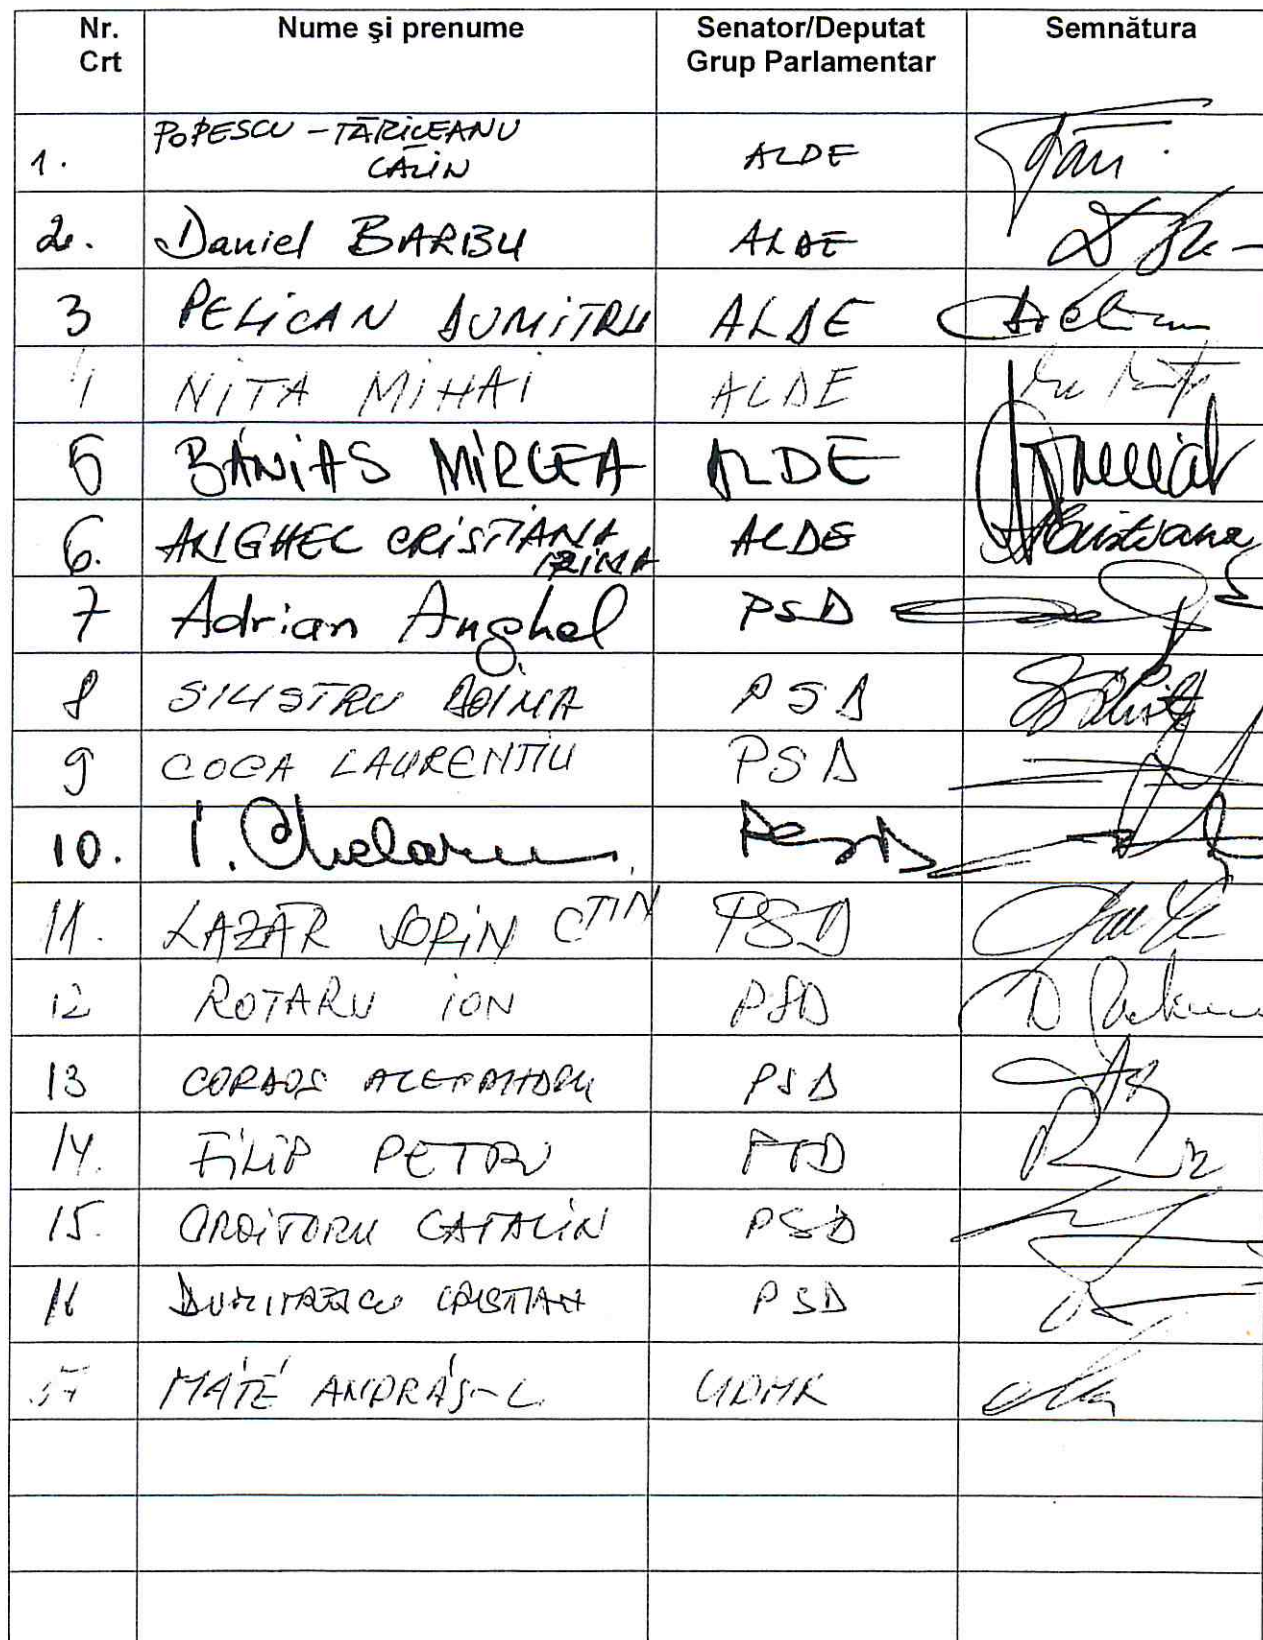 Nr. Crt Nume și prenume Senator/Deputat Grup Parlamentar Semnătura
1. POPESCU - TĂRICEANU CĂLIN ALDE
2. Daniel BARBU ALDE
3 PELICAN DUMITRU ALDE
4 NITA MIHAI ALDE
5 BĂNIAS MIRCEA ALDE
6. ANGHEL CRISTIANA IRINA ALDE
7 Adrian Anghel PSD
8 SILISTRU DOINA PSD
9 COCA LAURENTIU PSD
10. I. Chelaru PSD
11. LAZĂR SORIN CTIN PSD
12 ROTARU ION PSD
13 CORDOS ALEXANDRU PSD
14. FILIP PETRU PSD
15. CROITORU CATALIN PSD
16 DUMITRESCU CRISTIAN PSD
17 MÁTÉ ANDRÁS-L UDMR